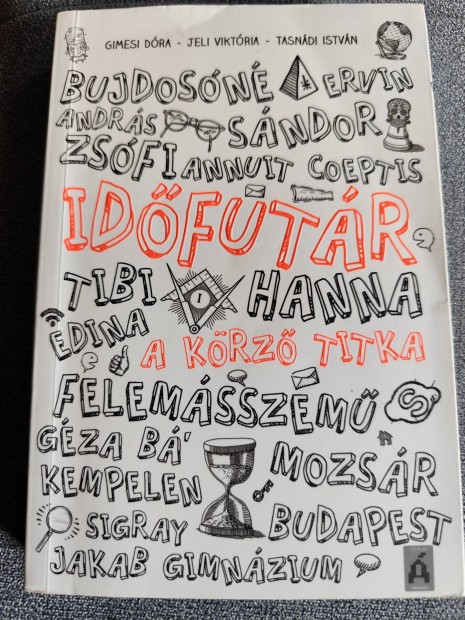 GIMESI DÓRA - JELI VIKTÓRIA - TASNÁDI ISTVÁN
BUJDOSÓNÉ ERVIN
ANDRÁS SÁNDOR
ZSÓFI ANNUIT COEPTIS
IDŐFUTÁR
TIBI HANNA
EDINA
A KÖRZŐ TITKA
FELEMÁSSZEMŰ
GÉZA BÁ'
MOZSÁR
KEMPELEN
SIGRAY BUDAPEST
JAKAB GIMNÁZIUM